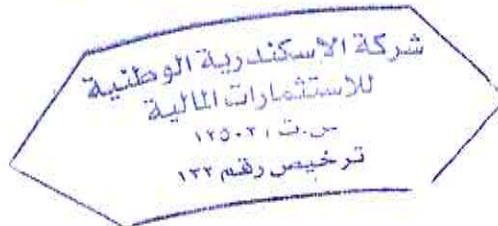 شركة الاسكندرية الوطنية
للاستثمارات المالية
س.ت ١٢٥٠٢٠
ترخيص رقم ١٣٢